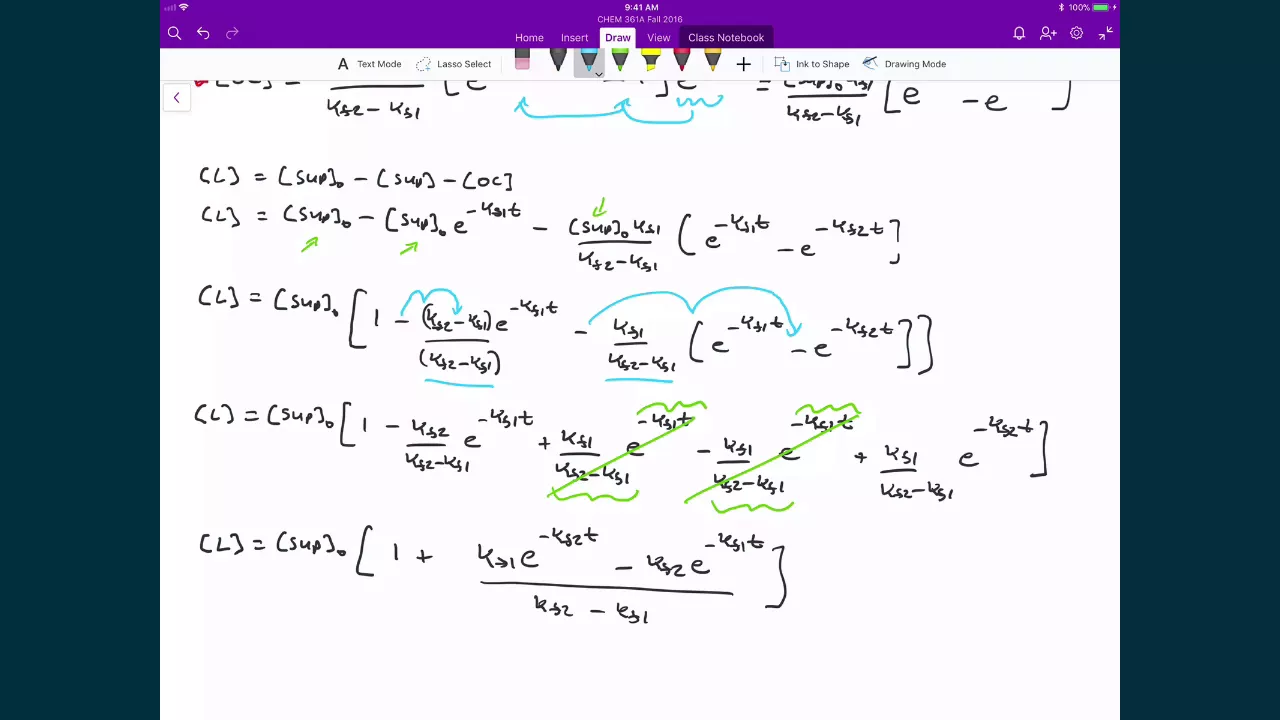 9:41 AM
100%
CHEM 361A Fall 2016
Home Insert Draw View Class Notebook
A Text Mode Lasso Select + Ink to Shape Drawing Mode
[OC] = / (kf2 - kf1) [e - 1] e = [Sup]₀ kf1 / (kf2 - kf1) [e - e ]
[L] = [Sup]₀ - [Sup] - [OC]
[L] = [Sup]₀ - [Sup]₀ e^(-kf1t) - [Sup]₀ kf1 / (kf2 - kf1) (e^(-kf1t) - e^(-kf2t)]
[L] = [Sup]₀ [1 - (kf2 - kf1) e^(-kf1t) / (kf2 - kf1) - kf1 / (kf2 - kf1) (e^(-kf1t) - e^(-kf2t)]]
[L] = [Sup]₀ [1 - kf2 / (kf2 - kf1) e^(-kf1t) + kf1 / (kf2 - kf1) e^(-kf1t) - kf1 / (kf2 - kf1) e^(-kf1t) + kf1 / (kf2 - kf1) e^(-kf2t)]
[L] = [Sup]₀ [1 + (kf1 e^(-kf2t) - kf2 e^(-kf1t)) / (kf2 - kf1)]